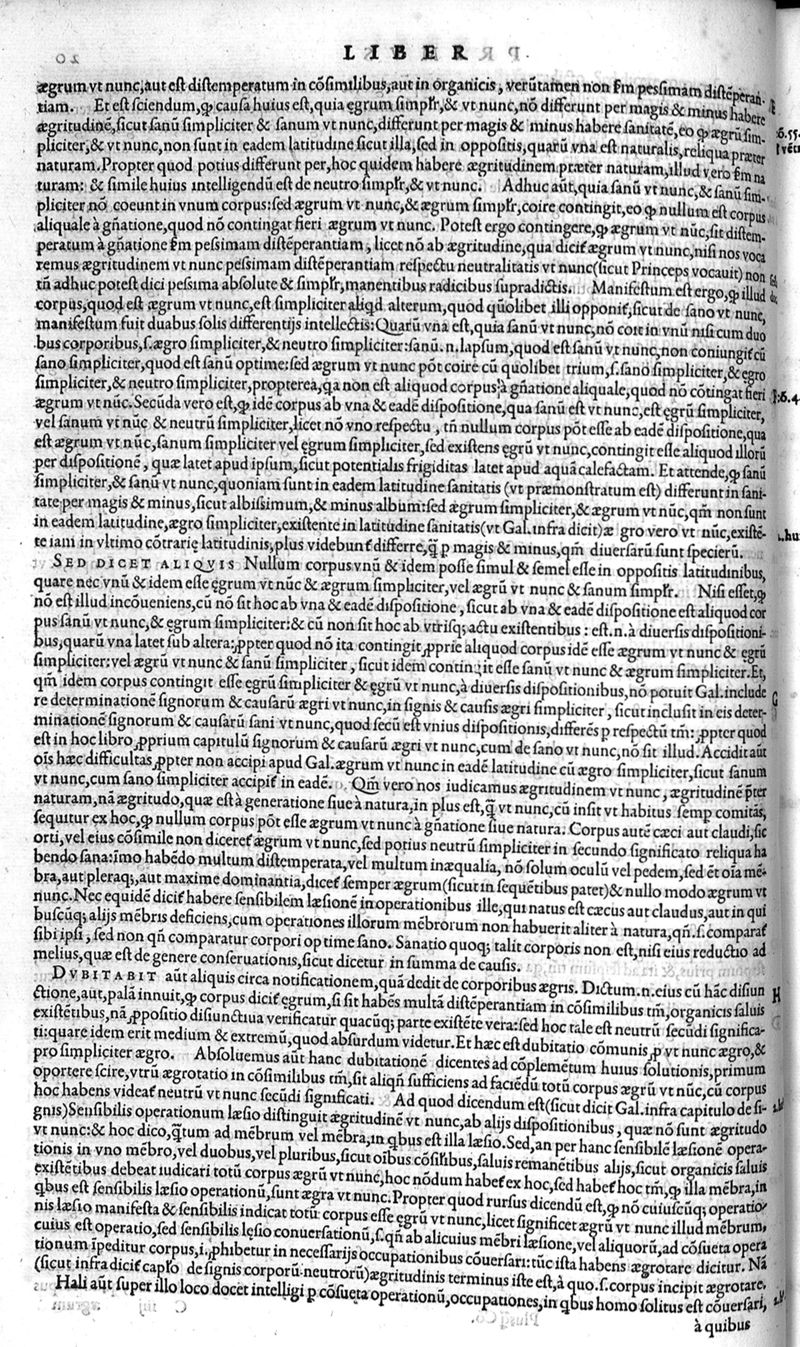 LIBER
ægrum vt nunc, aut est distemperatum in cõsimilibus, aut in organicis, verũtamen non s̃m pessimam distẽperan-
tiam. Et est sciendum, ꝙ causa huius est, quia ęgrum simplr̃, & vt nunc, nõ differunt per magis & minus habere
ægritudinẽ, sicut sanũ simpliciter & sanum vt nunc, differunt per magis & minus habere sanitatẽ, eo ꝙ ægrũ sim-
pliciter, & vt nunc, non sunt in eadem latitudine sicut illa, sed in oppositis, quarũ vna est naturalis, reliqua præter
naturam. Propter quod potius differunt per, hoc quidem habere ægritudinem præter naturam, illud vero s̃m na
turam: & simile huius intelligendũ est de neutro simplr̃, & vt nunc. Adhuc aũt, quia sanũ vt nunc, & sanũ sim-
pliciter nõ coeunt in vnum corpus: sed ægrum vt nunc, & ægrum simplr̃, coire contingit, eo ꝙ nullum est corpus
aliquale à gñatione, quod nõ contingat fieri ægrum vt nunc. Potest ergo contingere, ꝙ ægrum vt nũc, sit distem-
peratum à gñatione s̃m pessimam distẽperantiam, licet nõ ab ægritudine, qua dicit̃ ægrum vt nunc, nisi nos voca
remus ægritudinem vt nunc pessimam distẽperantiam respectu neutralitatis vt nunc (sicut Princeps vocauit) non
tñ adhuc potest dici pessima absolute & simplr̃, manentibus radicibus supradictis. Manifestum est ergo, ꝙ illud
corpus, quod est ægrum vt nunc, est simpliciter aliqd alterum, quod qũolibet illi opponit̃, sicut de sano vt nunc,
manifestum fuit duabus solis differentijs intellectis: Quarũ vna est, quia sanũ vt nunc, nõ coit in vnũ nisi cum duo
bus corporibus, s. ægro simpliciter, & neutro simpliciter: sanũ. n. lapsum, quod est sanũ vt nunc, non coniungit̃ cũ
sano simpliciter, quod est sanũ optime: sed ægrum vt nunc põt coire cũ quolibet trium, s. sano simpliciter, & ęgro
simpliciter, & neutro simpliciter, propterea, qa non est aliquod corpus à gñatione aliquale, quod nõ cõtingat fieri
ægrum vt nũc. Secũda vero est, ꝙ idẽ corpus ab vna & eadẽ dispositione, qua sanũ est vt nunc, est ęgrũ simpliciter,
vel sanum vt nũc & neutrũ simpliciter, licet nõ vno respectu, tñ nullum corpus põt esse ab eadẽ dispositione, qua
est ægrum vt nũc, sanum simpliciter vel ęgrum simpliciter, sed existens ęgrũ vt nunc, contingit esse aliquod illorũ
per dispositionẽ, quæ latet apud ipsum, sicut potentialis frigiditas latet apud aquã calefactam. Et attende, ꝙ sanũ
simpliciter, & sanũ vt nunc, quoniam sunt in eadem latitudine sanitatis (vt præmonstratum est) differunt in sani-
tate per magis & minus, sicut albissimum, & minus album: sed ægrum simpliciter, & ægrum vt nũc, qm̃ non sunt
in eadem latitudine, ægro simpliciter, existente in latitudine sanitatis (vt Gal. infra dicit) æ gro vero vt nũc, existẽ-
te iam in vltimo cõtrarię latitudinis, plus videbunt̃ differre, q̃ p magis & minus, qm̃ diuersarũ sunt specierũ.
SED DICET ALIQVIS Nullum corpus vnũ & idem posse simul & semel esse in oppositis latitudinibus,
quare nec vnũ & idem esse ęgrum vt nũc & ægrum simpliciter, vel ægrũ vt nunc & sanum simplr̃. Nisi esset, ꝙ
nõ est illud incõueniens, cũ nõ sit hoc ab vna & eadẽ dispositione, sicut ab vna & eadẽ dispositione est aliquod cor
pus sanũ vt nunc, & ęgrum simpliciter: & cũ non sit hoc ab vtrisq; actu existentibus: est. n. à diuersis dispositioni-
bus, quarũ vna latet sub altera: ppter quod nõ ita contingit, pprie aliquod corpus idẽ esse ægrum vt nunc & ęgrũ
simpliciter: vel ægrũ vt nunc & sanũ simpliciter, sicut idem contingit esse sanũ vt nunc & ægrum simpliciter. Et,
qm̃ idem corpus contingit esse ęgrũ simpliciter & ęgrũ vt nunc, à diuersis dispositionibus, nõ potuit Gal. include
re determinationẽ signorum & causarũ ægri vt nunc, in signis & causis ægri simpliciter, sicut inclusit in eis deter-
minationẽ signorum & causarũ sani vt nunc, quod secũ est vnius dispositionis, differẽs p respectũ tm̃: ppter quod
est in hoc libro, pprium capitulũ signorum & causarũ ægri vt nunc, cum de sano vt nunc, nõ sit illud. Accidit aũt
oĩs hæc difficultas, ppter non accipi apud Gal. ægrum vt nunc in eadẽ latitudine cũ ægro simpliciter, sicut sanum
vt nunc, cum sano simpliciter accipit̃ in eadẽ. Qm̃ vero nos iudicamus ægritudinem vt nunc, ægritudinẽ p̃ter
naturam, nã ægritudo, quæ est à generatione siue à natura, in plus est, q̃ vt nunc, cũ insit vt habitus semp comitãs,
sequitur ex hoc, ꝙ nullum corpus põt esse ægrum vt nunc à gñatione siue natura. Corpus autẽ cæci aut claudi, sic
orti, vel eius cõsimile non diceret̃ ægrum vt nunc, sed potius neutrũ simpliciter in secundo significato reliqua ha
bendo sana: imo habẽdo multum distemperata, vel multum inæqualia, nõ solum oculũ vel pedem, sed ẽt oĩa mẽ-
bra, aut pleraq;, aut maxime dominantia, dicet̃ semper ægrum (sicut in sequẽtibus patet) & nullo modo ægrum vt
nunc. Nec equidẽ dicit̃ habere sensibilem læsionẽ in operationibus ille, qui natus est cæcus aut claudus, aut in qui
buscũq; alijs mẽbris deficiens, cum operationes illorum mẽbrorum non habuerit aliter à natura, qñ. s. comparat̃
sibi ipsi, sed non qñ comparatur corpori optime sano. Sanatio quoq; talit corporis non est, nisi eius reductio ad
melius, quæ est de genere conseruationis, sicut dicetur in summa de causis.
DVBITABIT aũt aliquis circa notificationem, quã dedit de corporibus ægris. Dictum. n. eius cũ hãc disiun
ctione, aut, palã innuit, ꝙ corpus dicit̃ ęgrum, si sit habẽs multã distẽperantiam in cõsimilibus tm̃, organicis saluis
existẽtibus, nã, ppositio disiunctiua verificatur quacũq; parte existẽte vera: sed hoc tale est neutrũ secũdi significa-
ti: quare idem erit medium & extremũ, quod absurdum videtur. Et hæc est dubitatio cõmunis, p vt nunc ægro, &
pro simpliciter ægro. Absoluemus aũt hanc dubitationẽ dicentes ad cõplemẽtum huius solutionis, primum
oportere scire, vtrũ ægrotatio in cõsimilibus tm̃, sit aliqñ sufficiens ad faciẽdũ totũ corpus ægrũ vt nũc, cũ corpus
hoc habens videat̃ neutrũ vt nunc secũdi significati. Ad quod dicendum est (sicut dicit Gal. infra capitulo de si-
gnis) Sensibilis operationum læsio distinguit ægritudinẽ vt nunc, ab alijs dispositionibus, quæ nõ sunt ægritudo
vt nunc: & hoc dico, q̃tum ad mẽbrum vel mẽbra, in qbus est illa læsio. Sed, an per hanc sensibilẽ læsionẽ opera-
tionis in vno mẽbro, vel duobus, vel pluribus, sicut oĩbus cõsilibus, saluis remanẽtibus alijs, sicut organicis saluis
existẽtibus debeat iudicari totũ corpus ægrũ vt nunc, hoc nõdum habet̃ ex hoc, sed habet̃ hoc tm̃, ꝙ illa mẽbra, in
qbus est sensibilis læsio operationũ, sunt ægra vt nunc. Propter quod rursus dicendũ est, ꝙ nõ cuiuscũq; operatio-
nis læsio manifesta & sensibilis indicat totũ corpus esse ęgrũ vt nunc, licet significet ægrũ vt nunc illud mẽbrum,
cuius est operatio, sed sensibilis lęsio conuersationũ, s. qñ ab alicuius mẽbri læsione, vel aliquorũ, ad cõsueta opera
tionum ĩpeditur corpus, i. phibetur in necessarijs occupationibus cõuersari: tũc ista habens ægrotare dicitur. Nã
(sicut infra dicit̃ capło de signis corporũ neutrorũ) ægritudinis terminus iste est, à quo. s. corpus incipit ægrotare.
Hali aũt super illo loco docet intelligi p cõsueta operationũ, occupationes, in qbus homo solitus est cõuersari,
à quibus